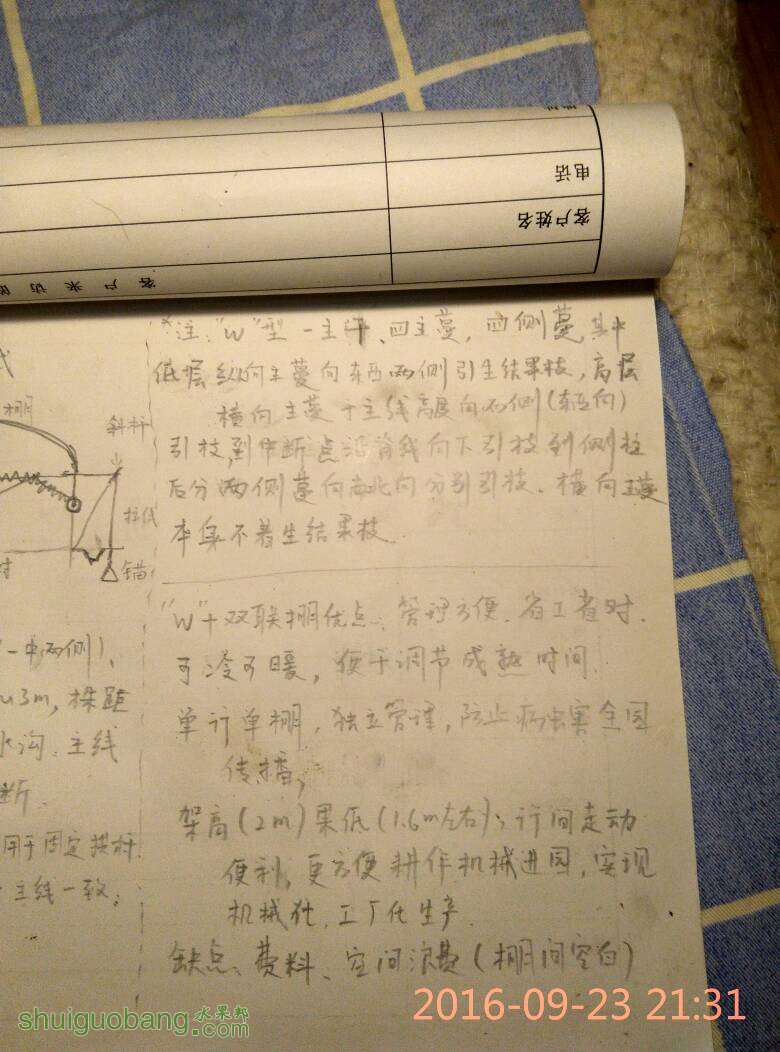 电话
客户姓名
客户来访
注："W"型 一主干、四主蔓，四侧蔓，其中
低层纵向主蔓向东西两侧引生结果枝，高层
横向主蔓于主线高度向两侧（东西向）
引枝，到中断点沿背线向下引枝到侧拉
后分两侧蔓向南北向分别引枝．横向主蔓
本身不着生结果枝
"W"+双联棚优点：管理方便．省工省时．
可冷可暖，便于调节成熟时间
单行单棚，独立管理，防止病虫害全园
传播；
架高（2m）果低（1.6m左右）；行间走动
便利，更方便耕作机械进园，实现
机械化、工厂化生产．
缺点：费料、空间浪费（棚间空白）
棚
斜杆
拉线
锚
一中两侧）、
3m，株距
水沟．主线
断．
用于固定拱杆
主线一致；
shuiguobang.com
水果邦
2016-09-23 21:31